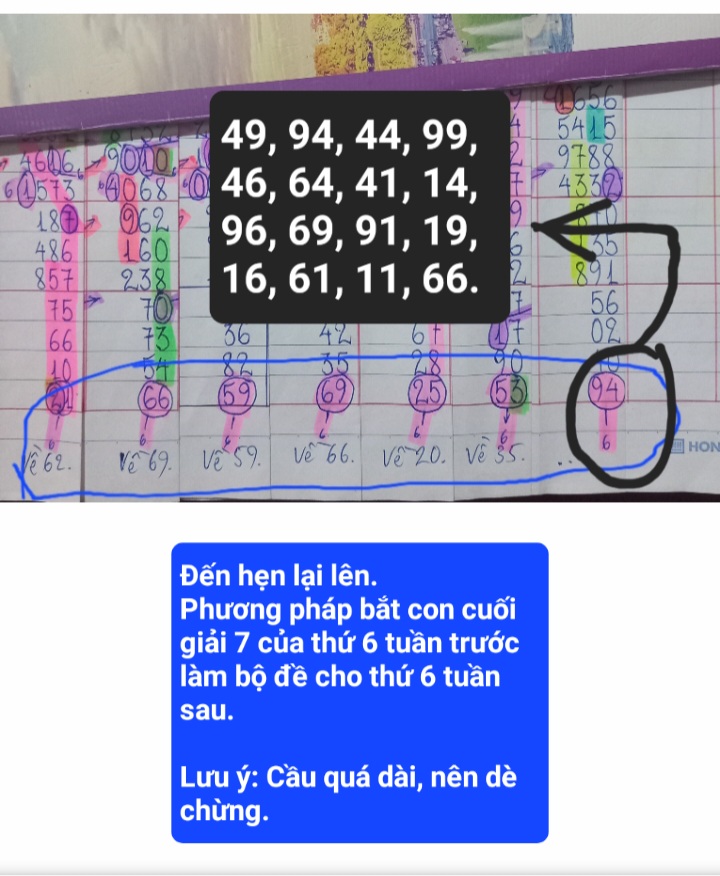 49, 94, 44, 99,
46, 64, 41, 14,
96, 69, 91, 19,
16, 61, 11, 66.
1656
5415
9788
4332
891
56
02
4606
9010
61573
64068
187
962
486
160
857
238
75
70
66
73
36
42
17
10
54
82
35
28
90
66
59
69
25
53
94
6
6
6
6
6
6
6
Về 62.
Về 69.
Về 59.
Về 66.
Về 20.
Về 35.
..
HON
Đến hẹn lại lên.
Phương pháp bắt con cuối
giải 7 của thứ 6 tuần trước
làm bộ đề cho thứ 6 tuần
sau.
Lưu ý: Cầu quá dài, nên dè
chừng.